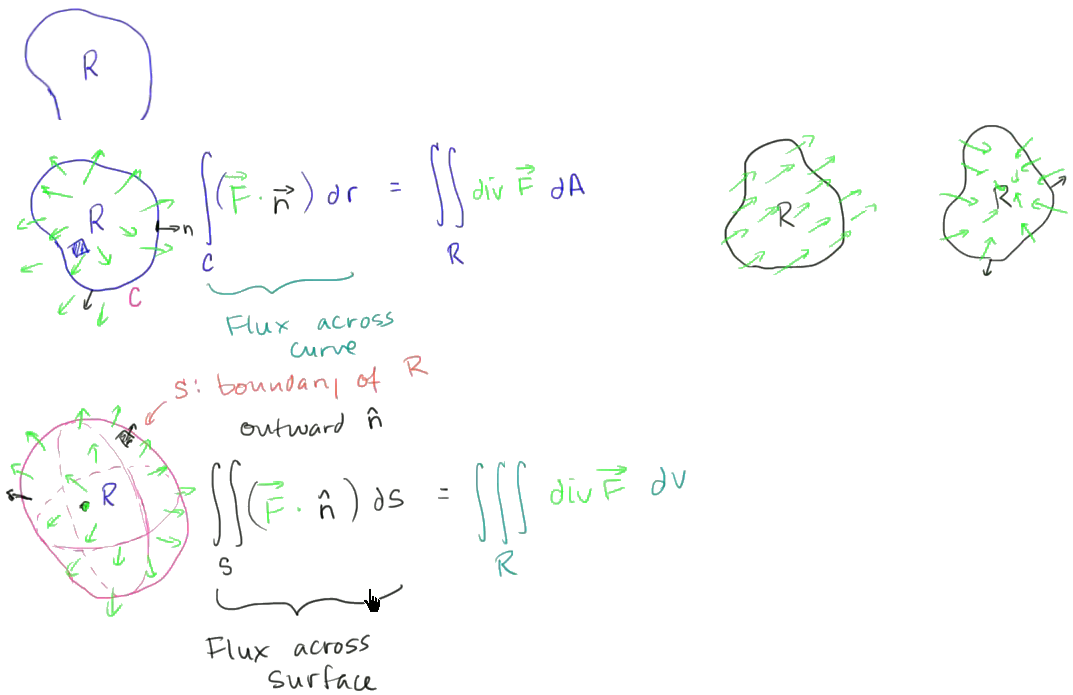 R
R
n
C
∫_C (F⃗ · n⃗) dr = ∬_R div F⃗ dA
Flux across
curve
R
R
S: boundary of R
outward n̂
R
∬_S (F⃗ · n̂) ds = ∭_R div F⃗ dv
Flux across
surface